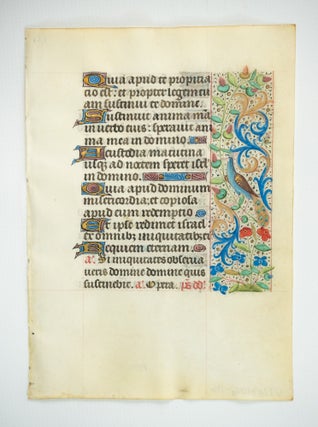 Quia apud te propicia
cio est: et propter legem tu
am sustinui te domine.
Sustinuit anima me
in verbo eius: speravit ani
ma mea in domino.
A custodia matutina
usq; ad noctem speret isrl
in domino.
Quia apud dominum
misericordia: et copiosa
apud eum redemptio
Et ipse redimet israel
ex omnibz iniquitatibz ei
Requiem eternam.
a. Si iniquitates observa
veris domine domine quis
sustinebit. a. Opera. ps dd